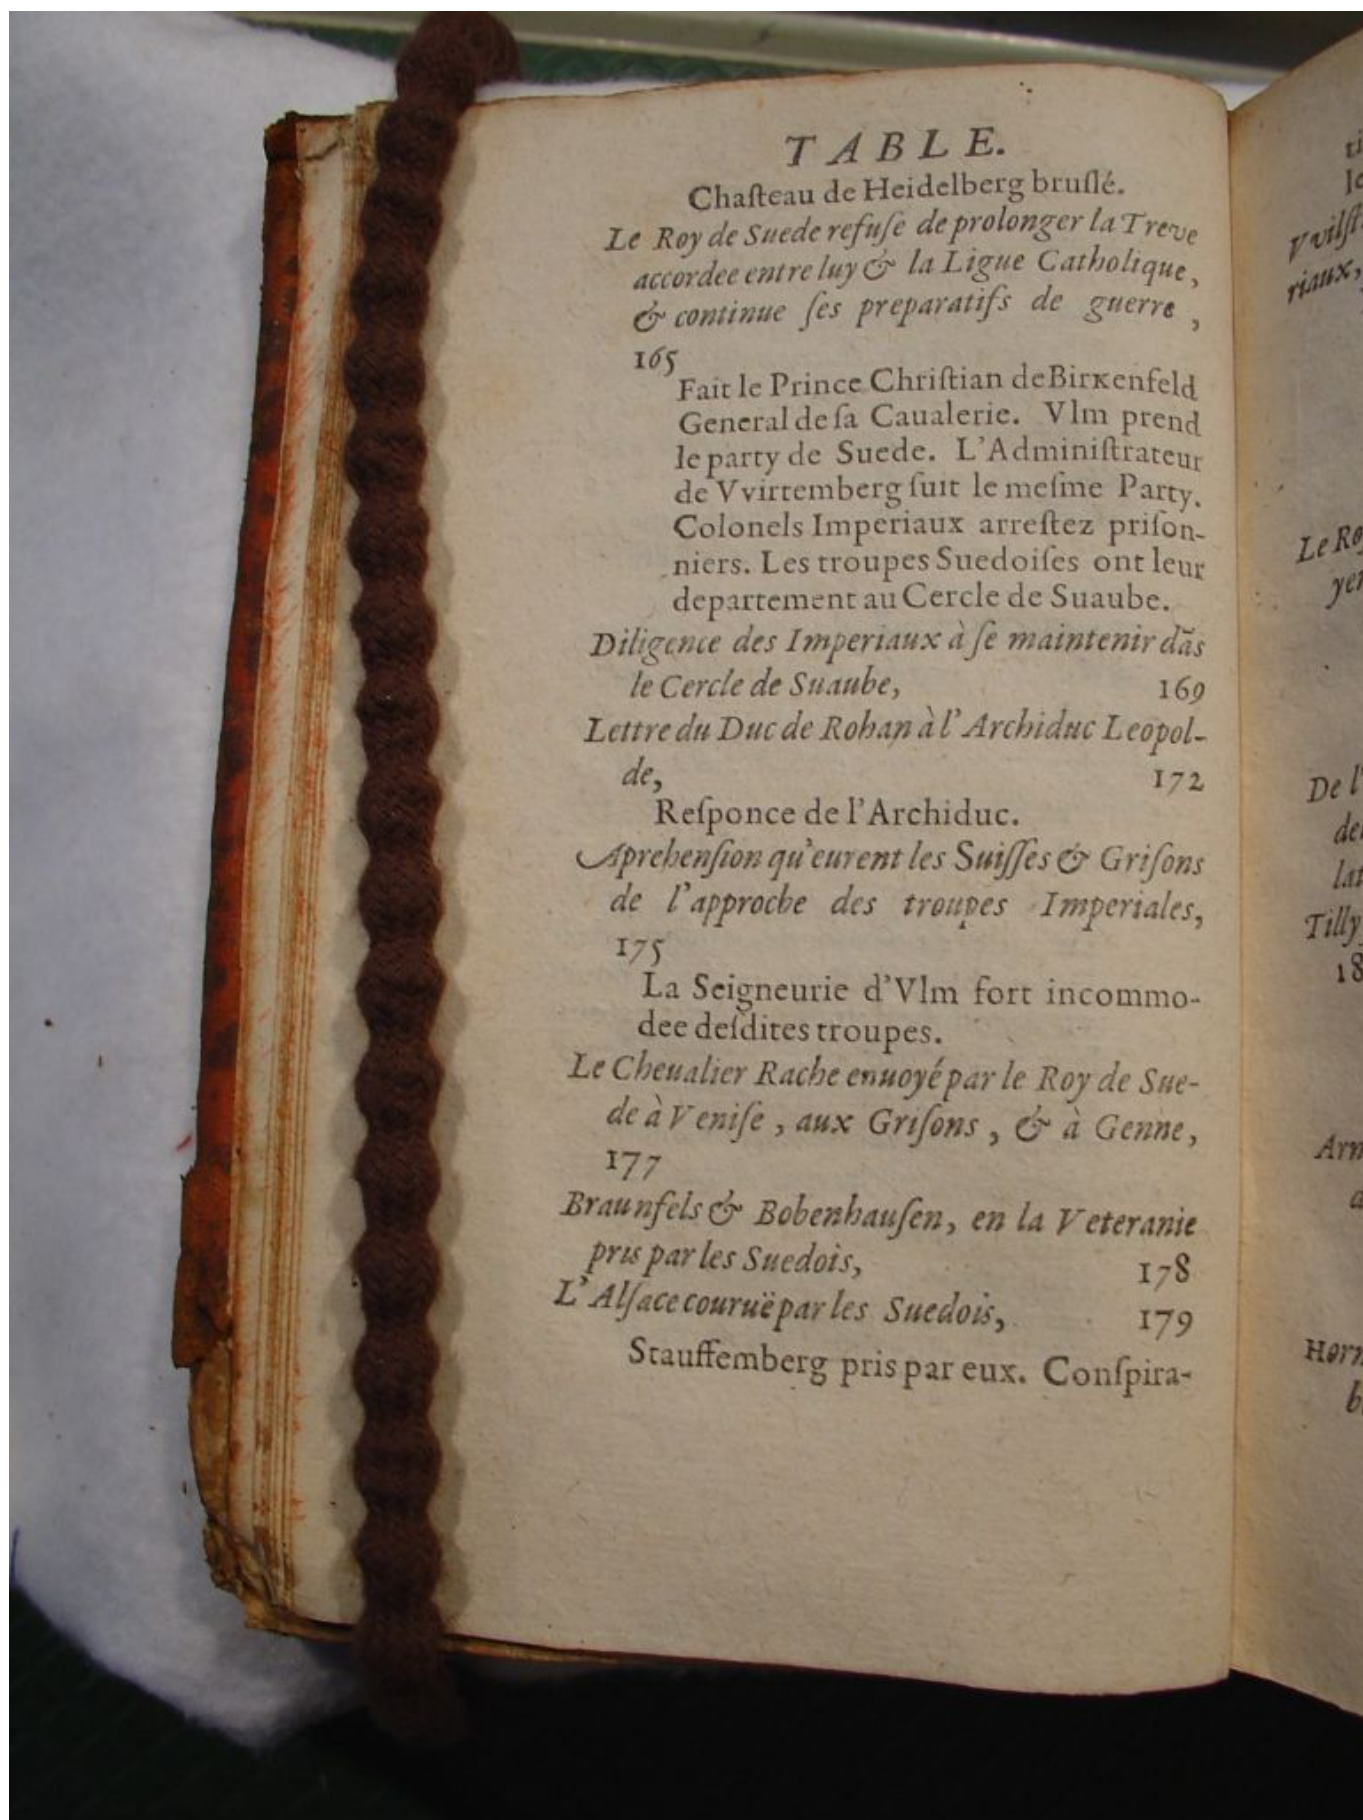 TABLE.
Chaſteau de Heidelberg bruſlé.
Le Roy de Suede refuſe de prolonger la Treve
accordee entre luy & la Ligue Catholique,
& continue ſes preparatifs de guerre,
165
Fait le Prince Chriſtian de Birxenfeld
General de ſa Caualerie. Vlm prend
le party de Suede. L'Adminiſtrateur
de Vvirtemberg ſuit le meſme Party.
Colonels Imperiaux arreſtez priſon-
niers. Les troupes Suedoiſes ont leur
departement au Cercle de Suaube.
Diligence des Imperiaux à ſe maintenir dãs
le Cercle de Suaube, 169
Lettre du Duc de Rohan à l'Archiduc Leopol-
de, 172
Reſponce de l'Archiduc.
Aprehenſion qu'eurent les Suiſſes & Griſons
de l'approche des troupes Imperiales,
175
La Seigneurie d'Vlm fort incommo-
dee deſdites troupes.
Le Cheualier Rache enuoyé par le Roy de Sue-
de à Veniſe, aux Griſons, & à Genne,
177
Braunfels & Bobenhauſen, en la Veteranie
pris par les Suedois, 178
L'Alſace couruë par les Suedois, 179
Stauffemberg pris par eux. Conſpira-
Vvilſt
riaux,
Le Ro
yer
De l'
de
lat
Tilly
18
Arn
Horn
b